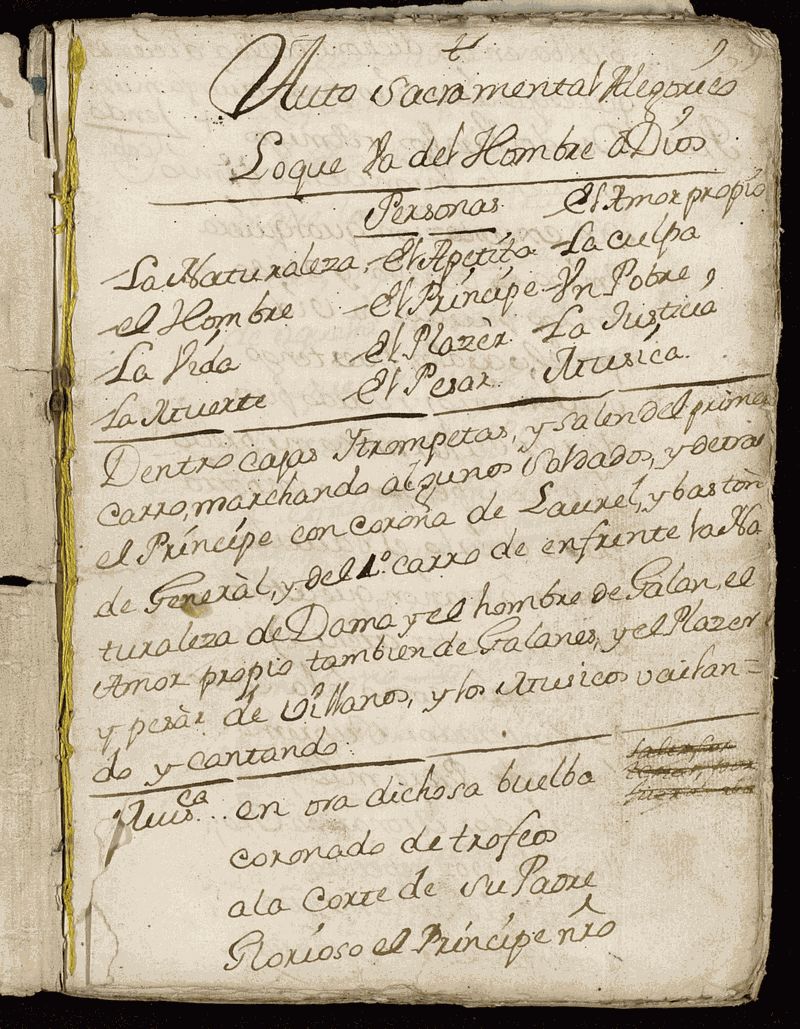 Auto Sacramental Alegorico
Lo que Va del Hombre á Dios
Personas El Amor propio
La Naturaleza El Apetito La culpa
el Hombre El Príncipe Vn Pobre
La Vida El Plazèr La Justicia
La Muerte El Pesar Musica.
Dentro cajas Ytrompetas, y salen del primer
carro, marchando algunos Soldados, y detras
el Príncipe con corona de Laurel, y bastòn
de Generàl, y del 1º carro de enfrente la Na
turaleza de Dama y el hombre de Galan, el
Amor propio tambien de Galanes, y el Plazer
y pesàr de Villanos, y los Musicos vailan=
do y cantando
Musca .. en ora dichosa buelba
coronado de trofeos
a la Corte de su Padre
Glorioso el Príncipe nro